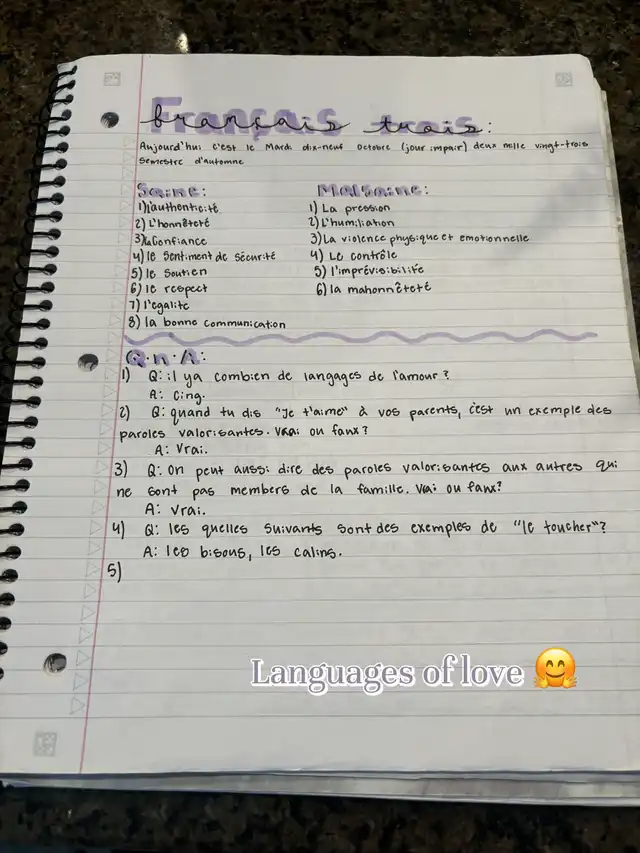 Français trois:
Aujourd'hui c'est le Mardi dix-neuf Octobre (jour impair) deux mille vingt-trois
semestre d'automne
Saine:
1) l'authenticité
2) L'honnêteté
3) la Confiance
4) le Sentiment de sécurité
5) le Soutien
6) le respect
7) l'egalité
8) la bonne communication
Malsaine:
1) La pression
2) L'humiliation
3) La violence physique et emotionnelle
4) Le contrôle
5) l'imprévisibilité
6) la mahonnêteté
Q.n.A:
1) Q: il ya combien de langages de l'amour?
A: Cinq.
2) Q: quand tu dis "Je t'aime" à vos parents, c'est un exemple des
paroles valorisantes. Vrai ou faux?
A: Vrai.
3) Q: On peut aussi dire des paroles valorisantes aux autres qui
ne sont pas members de la famille. Vrai ou faux?
A: Vrai.
4) Q: les quelles suivants sont des exemples de "le toucher"?
A: les bisous, les calins.
5)
Languages of love 🤗